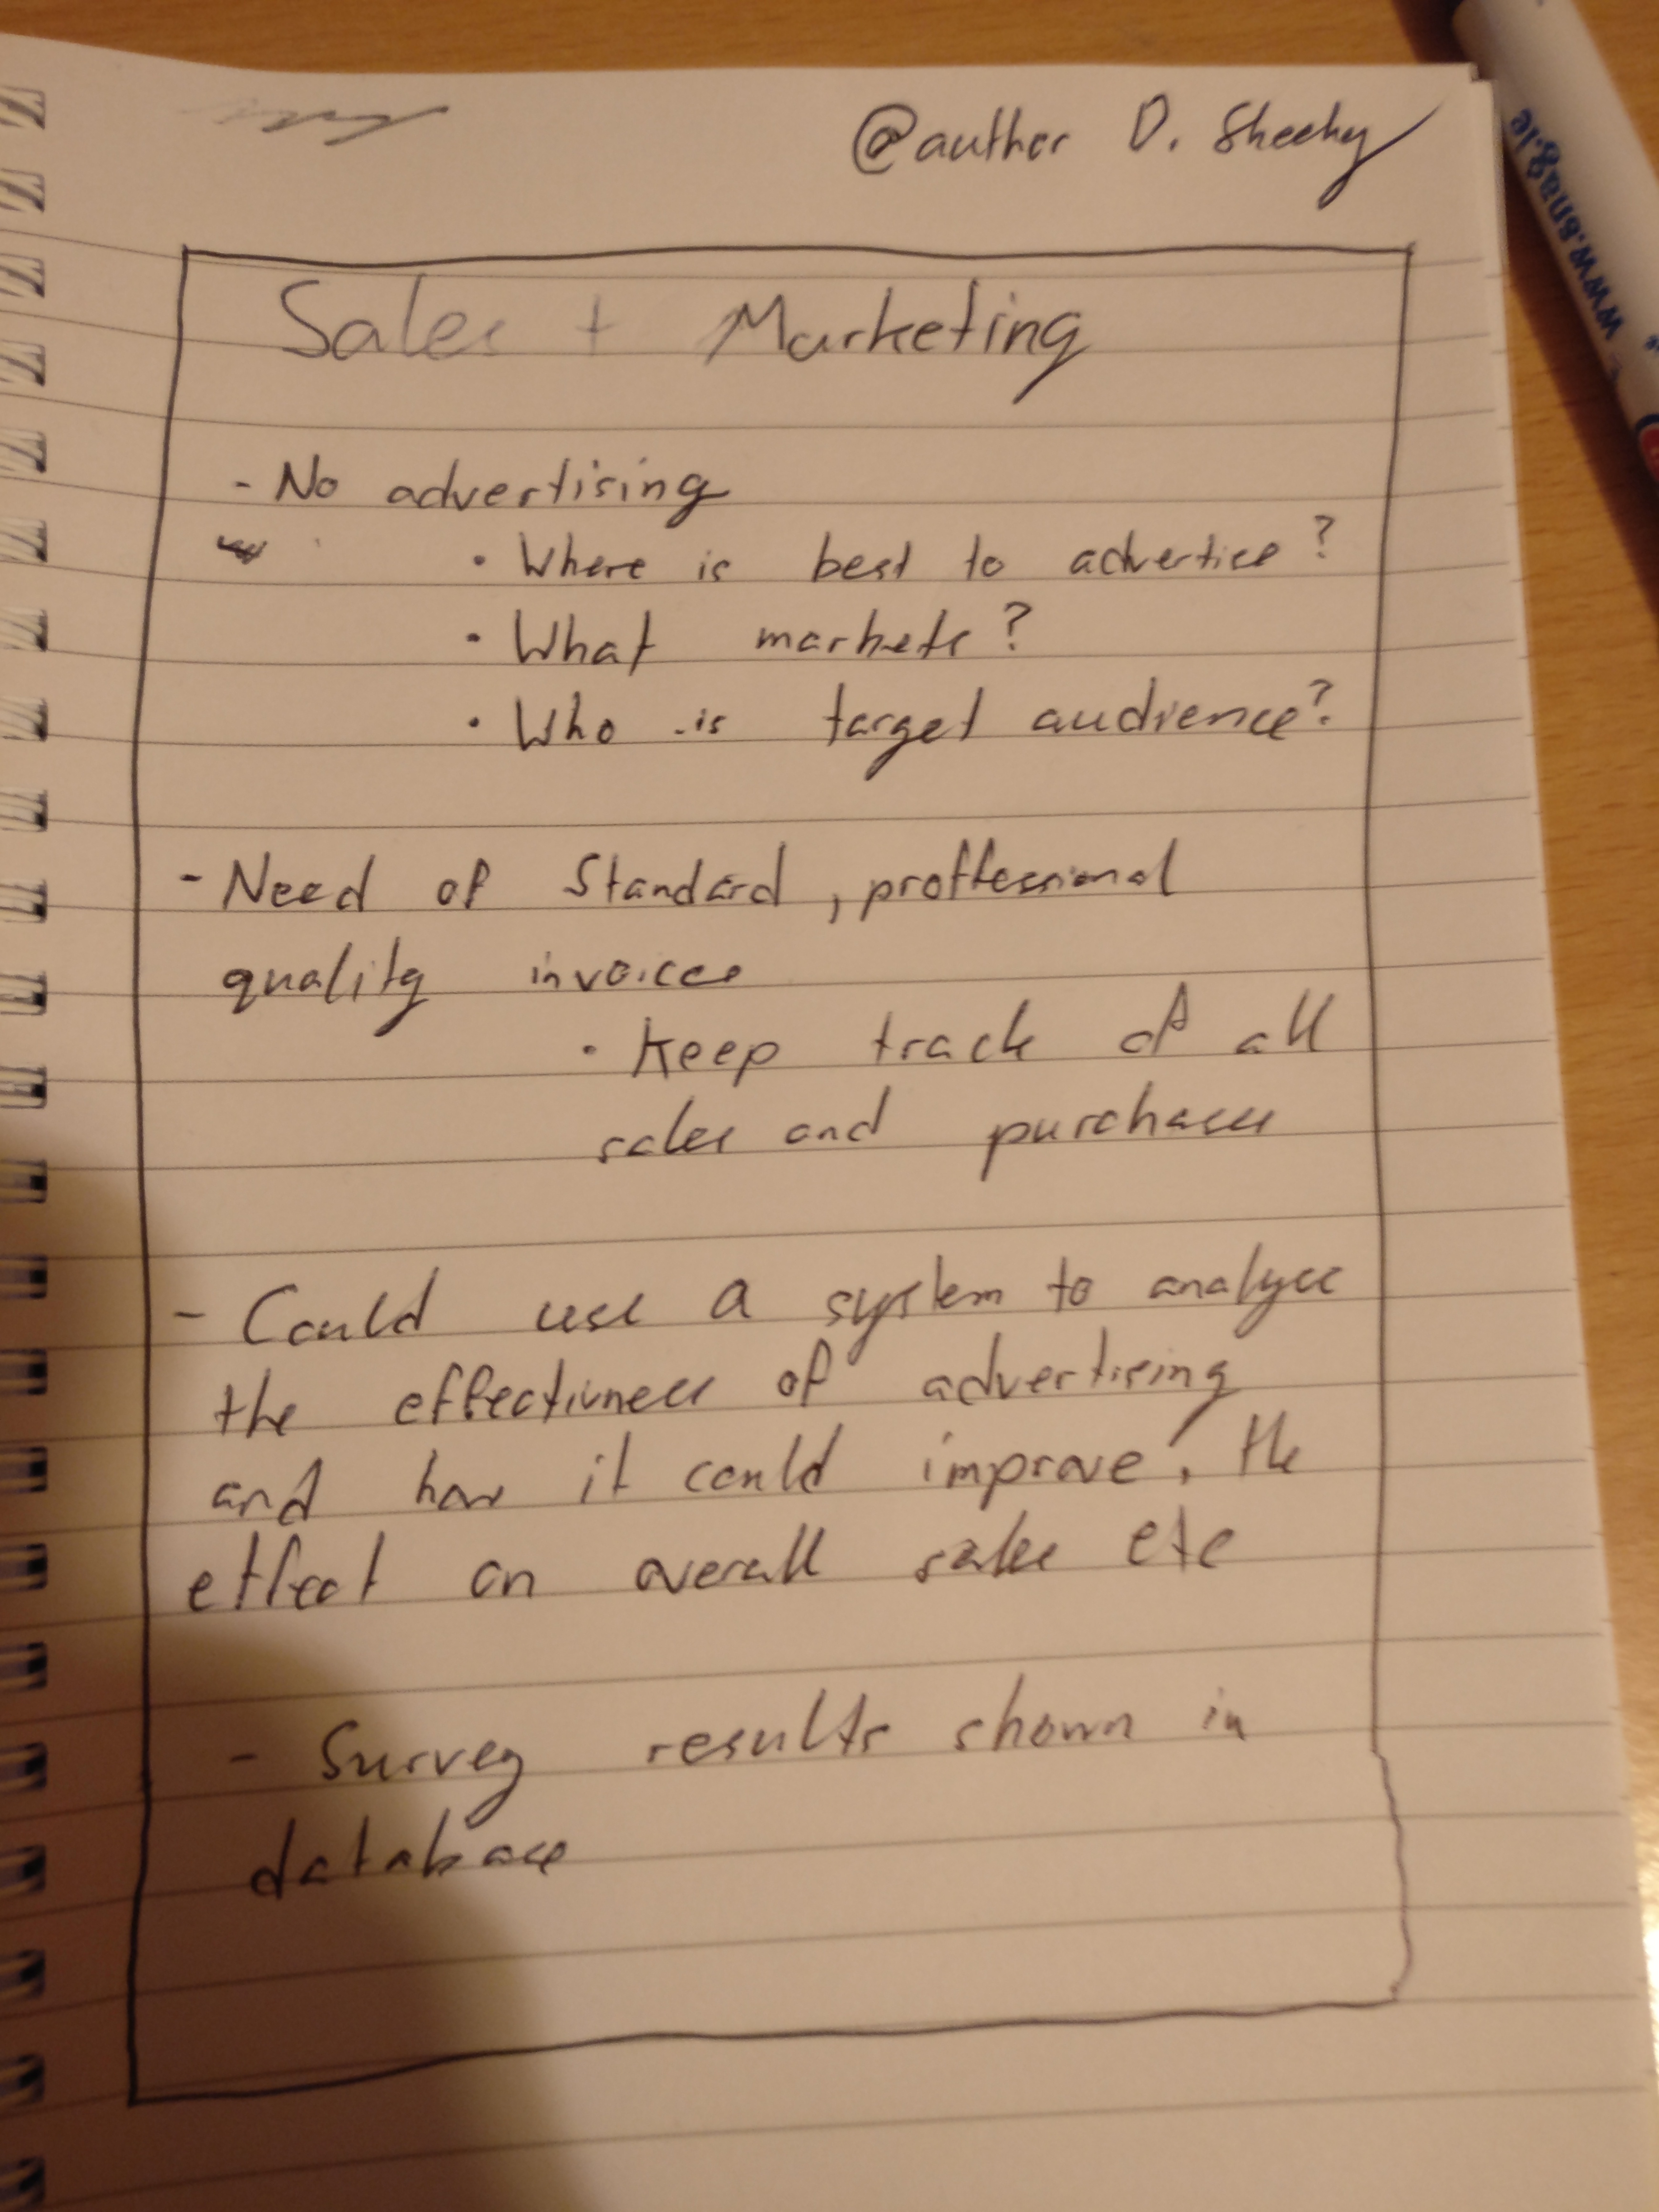 @author D. Sheehy
Sales + Marketing
- No advertising
• Where is best to advertise?
• What markets?
• Who is target audience?
- Need of Standard, proffessional
quality invoices
• Keep track of all
sales and purchases
- Could use a system to analyse
the effectivness of advertising
and how it could improve, the
effect on overall sales etc
- Survey results shown in
database
www.snag.ie